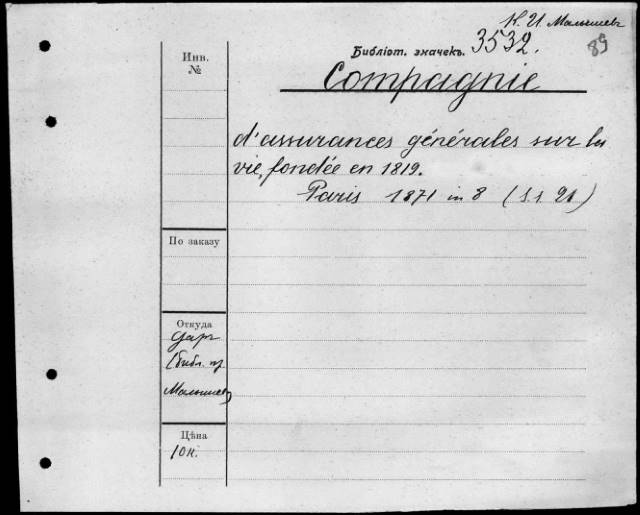 К. И. Малышевъ
Инв.
№
Библіот. значекъ. 3532.
89
Compagnie
d'assurances générales sur la
vie, fondée en 1819.
Paris 1871 in 8
По заказу
Откуда
Даръ
(библ. пр
Малышев
Цѣна
10 к.